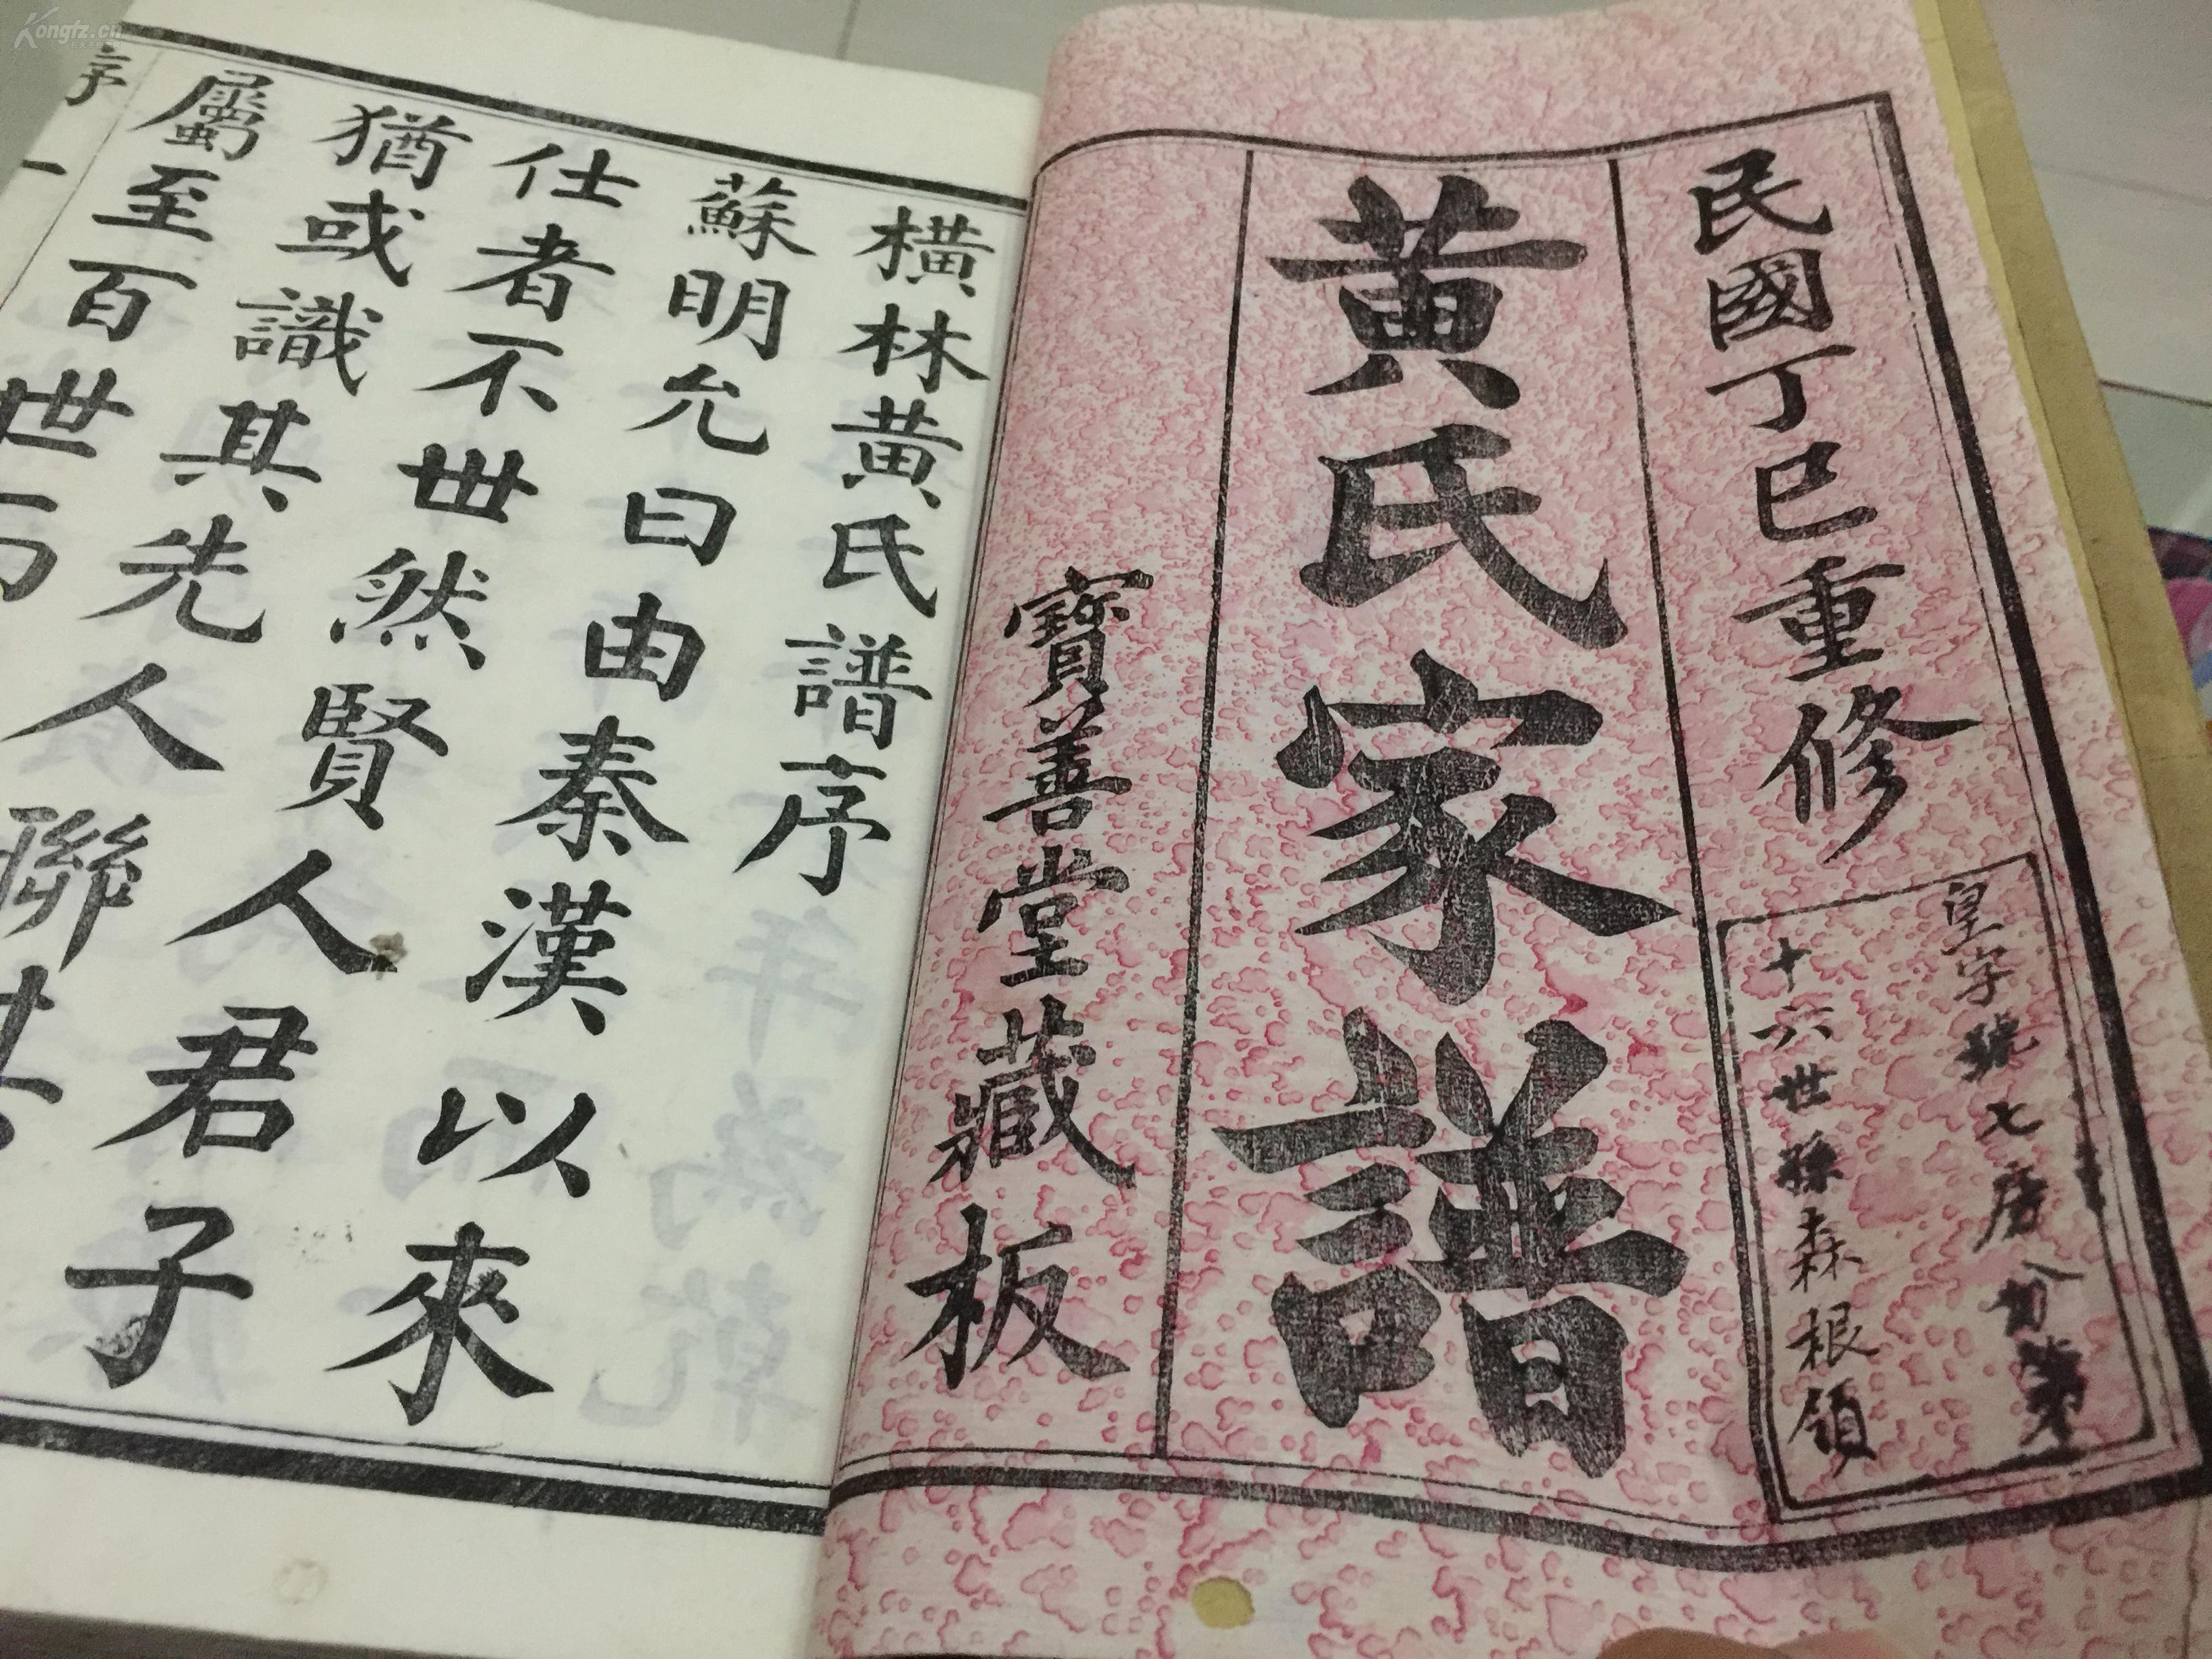 民國丁巳重修
皇字號七房
十六世孫森根領
黃氏家譜
寶善堂藏板
橫林黃氏譜序
蘇明允曰由秦漢以來
仕者不世然賢人君子
猶或識其先人
屬至百世
序一
Kongfz.cn